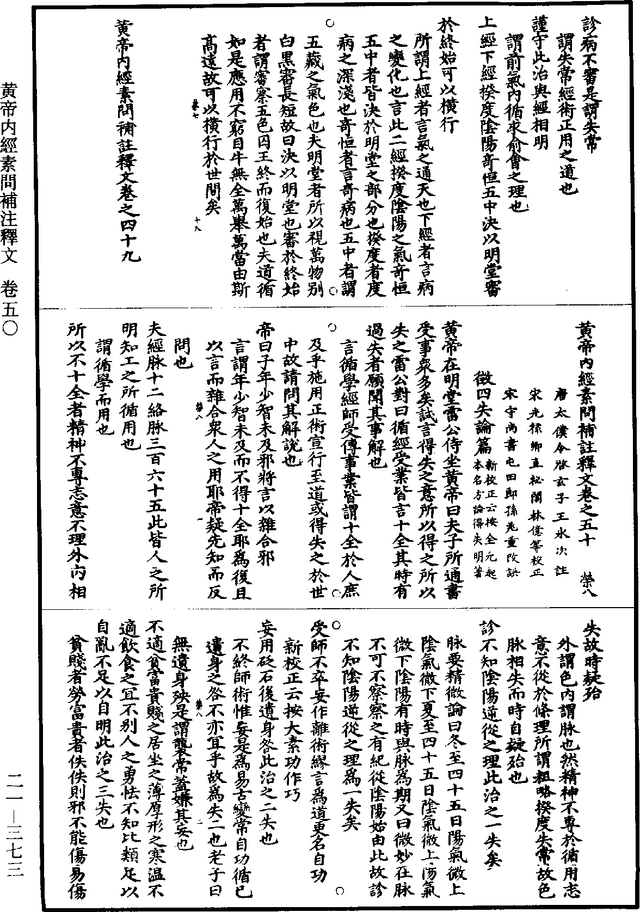 診病不審是謂失常
謂失常經術正用之道也
謹守此治與經相明
謂前氣內循求俞會之理也
上經下經揆度陰陽奇恒五中決以明堂審
於終始可以橫行
所謂上經者言氣之通天也下經者言病
之變化也言此二經揆度陰陽之氣奇恒
五中者皆決於明堂之部分也揆度者度
病之深淺也奇恒者言奇病也五中者謂
五藏之氣色也夫明堂者所以視萬物別
白黑審長短故曰決以明堂也審於終始
者謂審察五色囚王終而復始也夫道循
如是應用不窮目牛無全萬舉萬當由斯
高遠故可以橫行於世間矣
黃帝內經素問補註釋文卷之四十九
黃帝內經素問補註釋文卷之五十 榮八
唐太僕令啟玄子王冰次註
宋光祿卿直祕閣林億等校正
宋守尚書屯田郎孫兆重改誤
徵四失論篇 新校正云按全元起本名方論得失明著
黃帝在明堂雷公侍坐黃帝曰夫子所通書
受事眾多矣試言得失之意所以得之所以
失之雷公對曰循經受業皆言十全其時有
過失者願聞其事解也
言循學經師受傳事業皆謂十全於人庶
及乎施用正術宣行至道或得失之於世
中故請問其解說也
帝曰子年少智未及邪將言以雜合邪
言謂年少智未及而不得十全耶為復且
以言而雜合眾人之用耶帝疑先知而反
問也
夫經脉十二絡脉三百六十五此皆人之所
明知工之所循用也
謂循學而用也
所以不十全者精神不專志意不理外內相
失故時疑殆
外謂色內謂脉也然精神不專於循用志
意不從於條理所謂粗略揆度失常故色
脉相失而時自疑殆也
診不知陰陽逆從之理此治之一失矣
脉要精微論曰冬至四十五日陽氣微上
陰氣微下夏至四十五日陰氣微上陽氣
微下陰陽有時與脉為期又曰微妙在脉
不可不察察之有紀從陰陽始由此故診
不知陰陽逆從之理為一失矣
受師不卒妄作雜術謬言為道更名自功
新校正云按太素功作巧
妄用砭石後遺身咎此治之二失也
不終師術惟妄是為易古變常自功循已
遺身之咎不亦宜乎故為失二也老子曰
無遺身殃是謂襲常蓋嫌其妄也
不適貧富貴賤之居坐之薄厚形之寒溫不
適飲食之宜不別人之勇怯不知比類足以
自亂不足以自明此治之三失也
貧賤者勞富貴者佚佚則邪不能傷易傷
黃帝內經素問補注釋文 卷五〇
二一—三七三